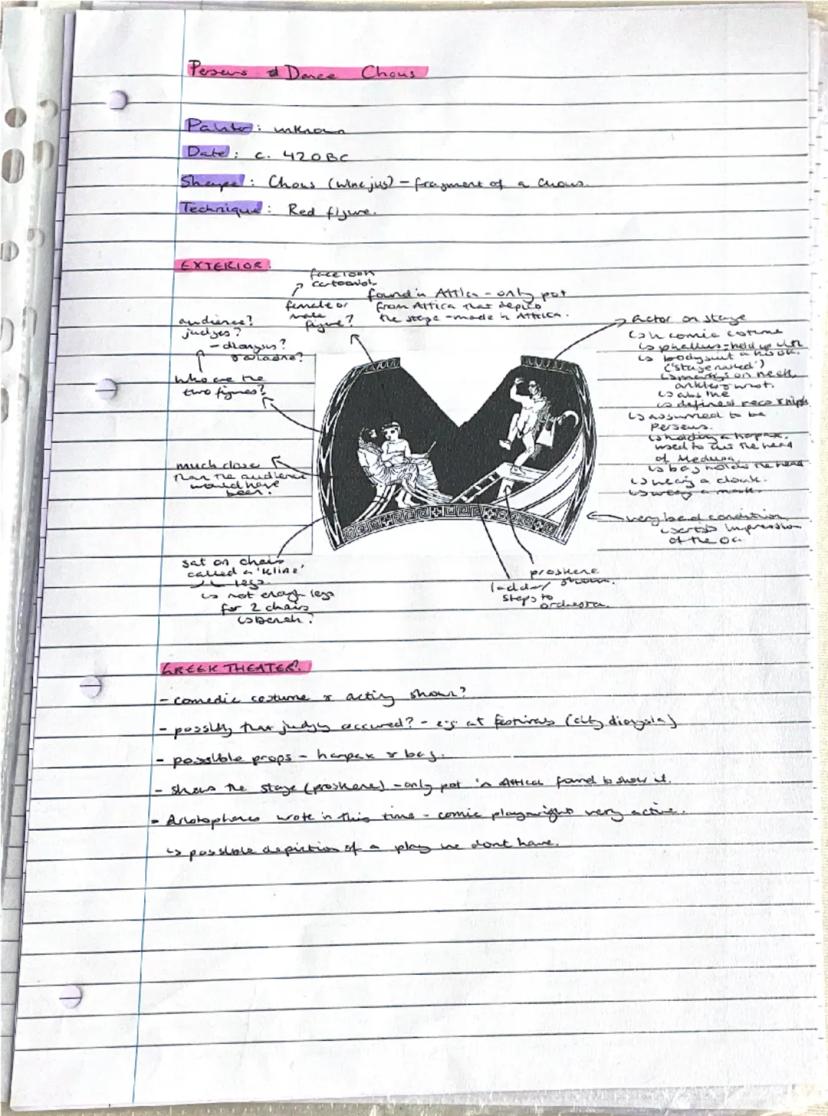 Perseus & Dance Chous
Painter: unknown
Date: c. 420BC
Shape: Chous (wine jug) - fragment of a chous.
Technique: Red figure.
EXTERIOR:
face looks
cartoonish
female or
male
figure?
found in Attica - only pot
from Attica that depicts
the stage - made in Attica.
audience?
judges?
- dionysus?
& ariadne?
who are the
two figures?
much closer
than the audience
would have
been?
sat on chairs
called a 'kline'
legs
↳ not enough legs
for 2 chairs
↳ bench?
→ Actor on stage
↳ in comic costume
↳ phallus - held up with
↳ bodysuit a hook.
('stage naked')
↳ markings on neck
ankles & wrist.
↳ abs
↳ defined pecs & nips
↳ assumed to be
Perseus.
↳ holding a harpax,
used to cut the head
of Medusa.
↳ bag holds the head
↳ wearing a cloak.
↳ wearing a mask.
very bad condition
↳ artists impression
of the
proskene
shown.
ladder/
steps to
orchestra.
GREEK THEATER:
- comedic costume & acting shown?
- possibly that judging occured? - e.g at festivals (city dionysia)
- possible props - harpax & bag.
- shows the stage (proskene) - only pot in Attica found to show it.
- Aristophanes wrote in this time - comic playwright very active.
↳ possible depiction of a play we dont have.